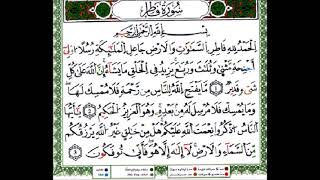 سُورَةُ فَاطِرٍ
بِسْمِ ٱللَّهِ ٱلرَّحْمَٰنِ ٱلرَّحِيمِ
ٱلْحَمْدُ لِلَّهِ فَاطِرِ ٱلسَّمَٰوَٰتِ وَٱلْأَرْضِ جَاعِلِ ٱلْمَلَٰٓئِكَةِ رُسُلًا أُو۟لِىٓ
أَجْنِحَةٍ مَّثْنَىٰ وَثُلَٰثَ وَرُبَٰعَ يَزِيدُ فِى ٱلْخَلْقِ مَا يَشَآءُ إِنَّ ٱللَّهَ عَلَىٰ كُلِّ
شَىْءٍ قَدِيرٌ ١ مَّا يَفْتَحِ ٱللَّهُ لِلنَّاسِ مِن رَّحْمَةٍ فَلَا مُمْسِكَ لَهَا
وَمَا يُمْسِكْ فَلَا مُرْسِلَ لَهُۥ مِنۢ بَعْدِهِۦ وَهُوَ ٱلْعَزِيزُ ٱلْحَكِيمُ ٢ يَٰٓأَيُّهَا
ٱلنَّاسُ ٱذْكُرُوا۟ نِعْمَتَ ٱللَّهِ عَلَيْكُمْ هَلْ مِنْ خَٰلِقٍ غَيْرُ ٱللَّهِ يَرْزُقُكُم
مِّنَ ٱلسَّمَآءِ وَٱلْأَرْضِ لَآ إِلَٰهَ إِلَّا هُوَ فَأَنَّىٰ تُؤْفَكُونَ